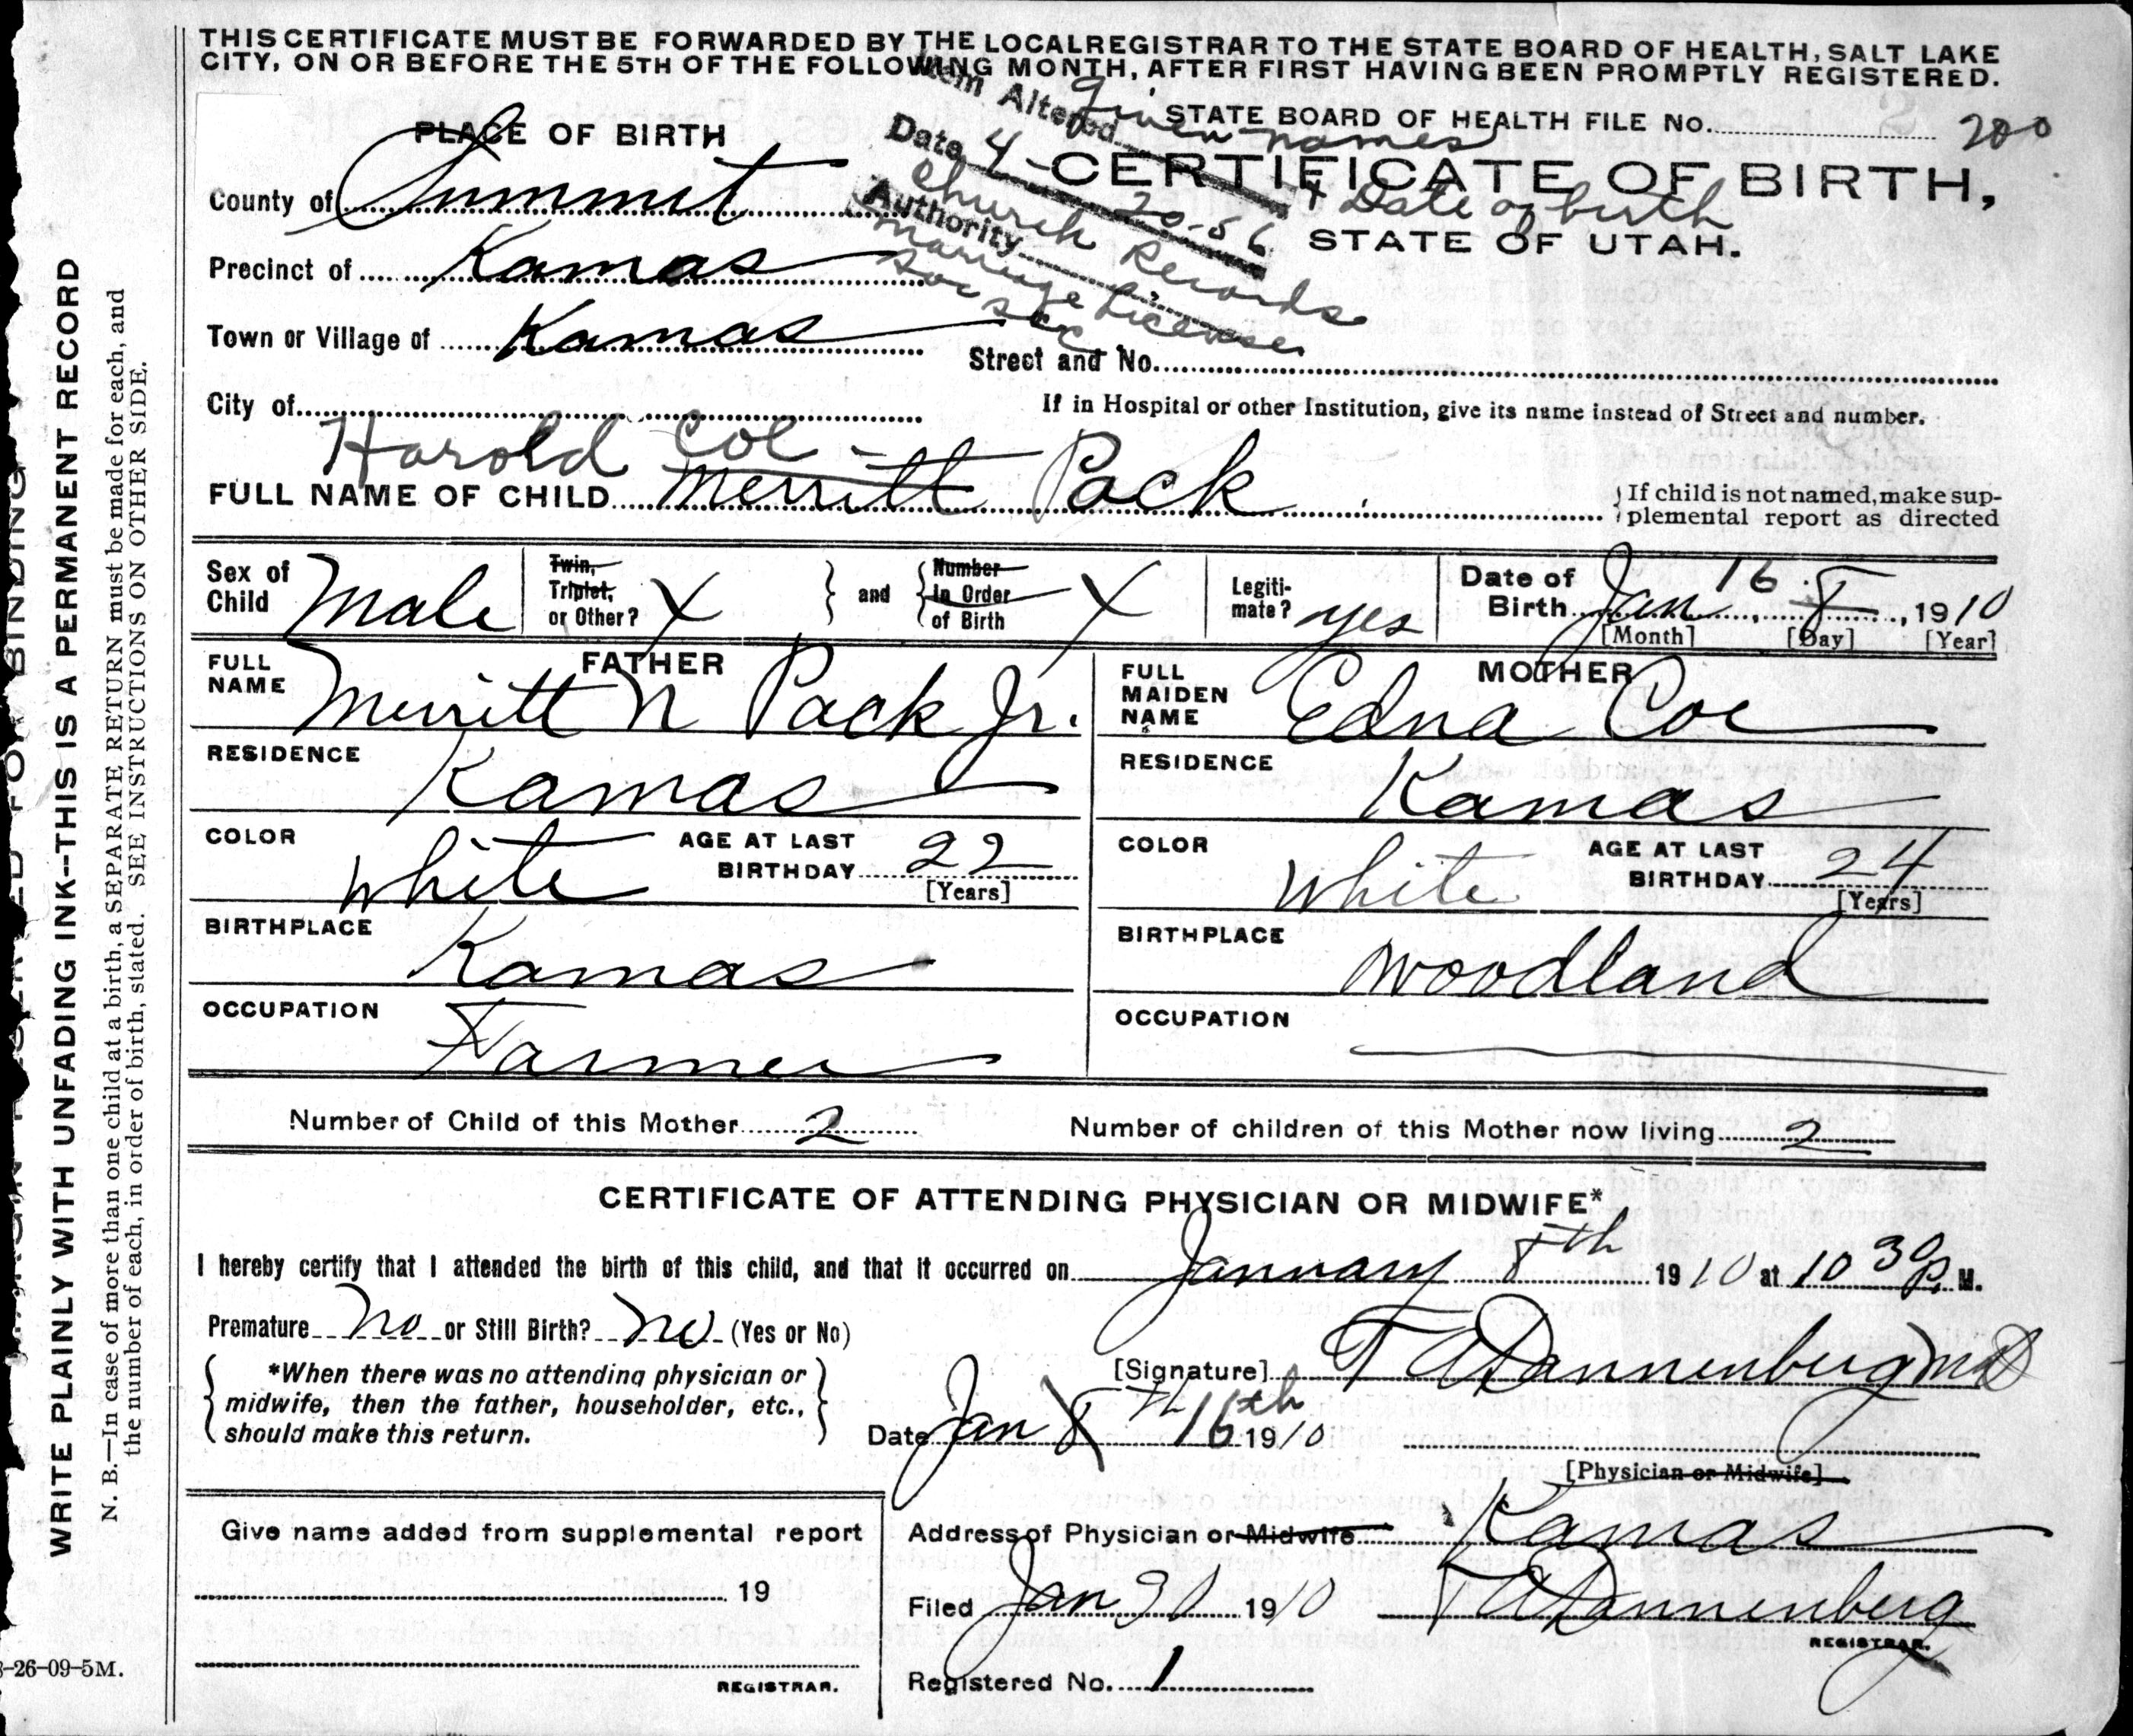 THIS CERTIFICATE MUST BE FORWARDED BY THE LOCAL REGISTRAR TO THE STATE BOARD OF HEALTH, SALT LAKE
CITY, ON OR BEFORE THE 5TH OF THE FOLLOWING MONTH, AFTER FIRST HAVING BEEN PROMPTLY REGISTERED.
Item Altered Given names + Date of birth
Date 4-20-56
Authority Church Records
Marriage License
Soc Sec
STATE BOARD OF HEALTH FILE No. 200
PLACE OF BIRTH
CERTIFICATE OF BIRTH,
STATE OF UTAH.
County of Summit
Precinct of Kamas
Town or Village of Kamas
Street and No.
City of
If in Hospital or other Institution, give its name instead of Street and number.
Harold Coe
FULL NAME OF CHILD Merritt Pack
If child is not named, make sup-
plemental report as directed
Sex of Child Male
Twin, Triplet, or Other? X
and
Number In Order of Birth X
Legiti-mate? yes
Date of Birth Jan 16 8, 1910
[Month] [Day] [Year]
FATHER
FULL NAME Merritt N Pack Jr.
RESIDENCE Kamas
COLOR white
AGE AT LAST BIRTHDAY 22
[Years]
BIRTHPLACE Kamas
OCCUPATION Farmer
MOTHER
FULL MAIDEN NAME Edna Coe
RESIDENCE Kamas
COLOR White
AGE AT LAST BIRTHDAY 24
[Years]
BIRTHPLACE Woodland
OCCUPATION
Number of Child of this Mother 2
Number of children of this Mother now living 2
CERTIFICATE OF ATTENDING PHYSICIAN OR MIDWIFE*
I hereby certify that I attended the birth of this child, and that it occurred on January 8th 1910 at 10 30 P. M.
Premature No or Still Birth? No (Yes or No)
*When there was no attending physician or
midwife, then the father, householder, etc.,
should make this return.
[Signature] T A Dannenberg MD
Date Jan 8th 16th 1910
[Physician or Midwife]
Give name added from supplemental report
19
REGISTRAR.
Address of Physician or Midwife Kamas
Filed Jan 31 1910 T A Dannenberg
REGISTRAR.
Registered No. 1
WRITE PLAINLY WITH UNFADING INK--THIS IS A PERMANENT RECORD
N. B.—In case of more than one child at a birth, a SEPARATE RETURN must be made for each, and
the number of each, in order of birth, stated. SEE INSTRUCTIONS ON OTHER SIDE.
-26-09-5M.